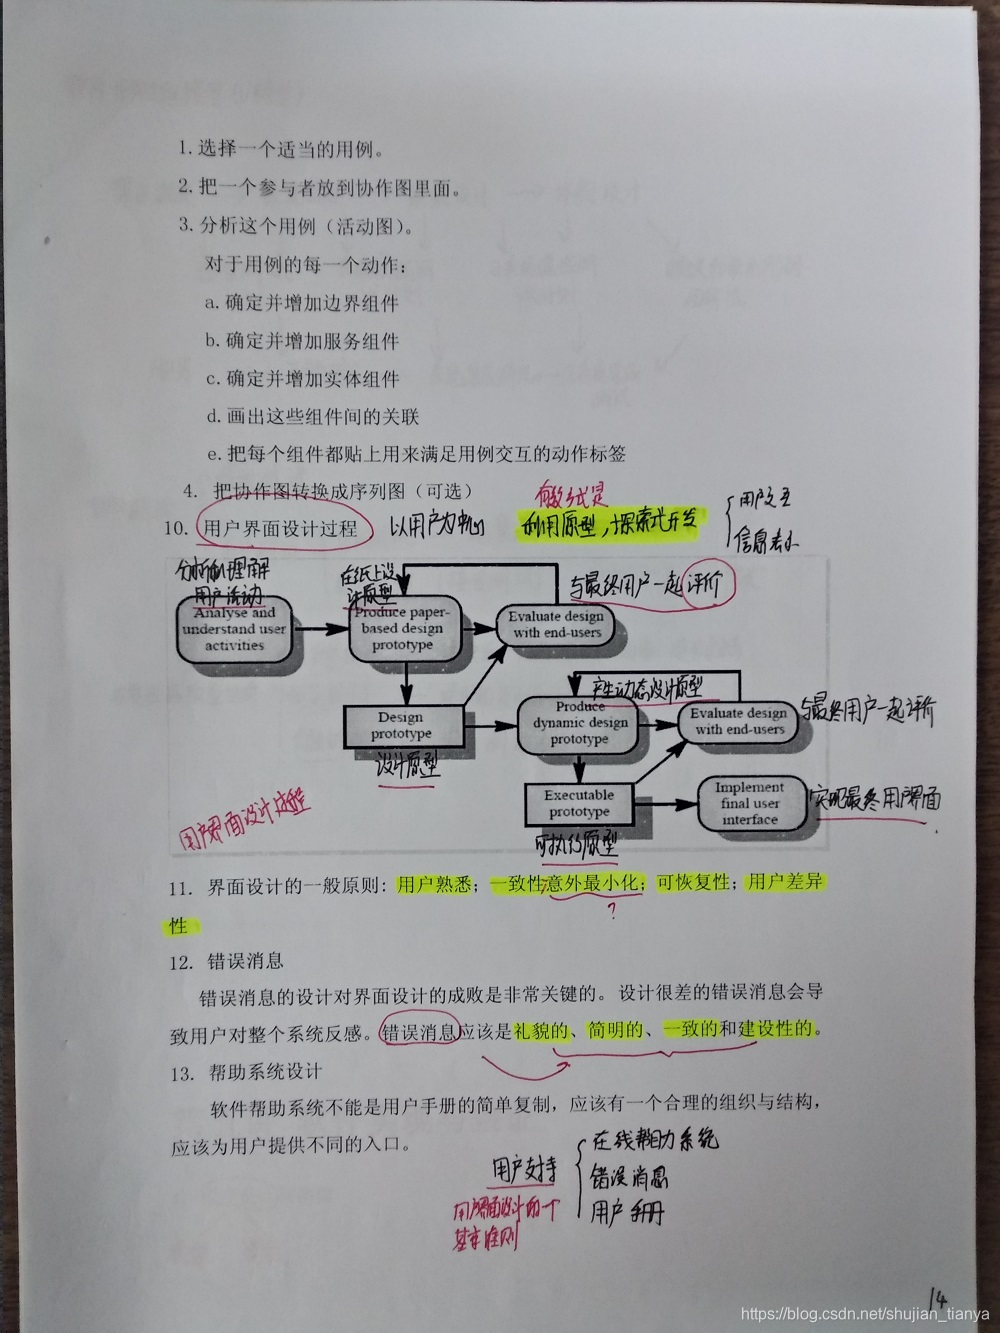 1. 选择一个适当的用例。
2. 把一个参与者放到协作图里面。
3. 分析这个用例（活动图）。
对于用例的每一个动作：
a. 确定并增加边界组件
b. 确定并增加服务组件
c. 确定并增加实体组件
d. 画出这些组件间的关联
e. 把每个组件都贴上用来满足用例交互的动作标签
4. 把协作图转换成序列图（可选）
10. 用户界面设计过程 以用户为中心
有效方式是
利用原型，探索式开发
用户交互
信息表示
分析和理解
用户活动
Analyse and
understand user
activities
在纸上设
计原型
Produce paper-
based design
prototype
与最终用户一起评价
Evaluate design
with end-users
Design
prototype
设计原型
产生动态设计原型
Produce
dynamic design
prototype
Evaluate design
with end-users
与最终用户一起评价
Executable
prototype
可执行原型
Implement
final user
interface
实现最终用户界面
用户界面设计过程
11. 界面设计的一般原则：用户熟悉；一致性;意外最小化；可恢复性；用户差异
性
?
12. 错误消息
错误消息的设计对界面设计的成败是非常关键的。设计很差的错误消息会导
致用户对整个系统反感。错误消息应该是礼貌的、简明的、一致的和建设性的。
13. 帮助系统设计
软件帮助系统不能是用户手册的简单复制，应该有一个合理的组织与结构，
应该为用户提供不同的入口。
用户支持
在线帮助系统
错误消息
用户手册
用户界面设计的一个
基本准则
14
https://blog.csdn.net/shujian_tianya